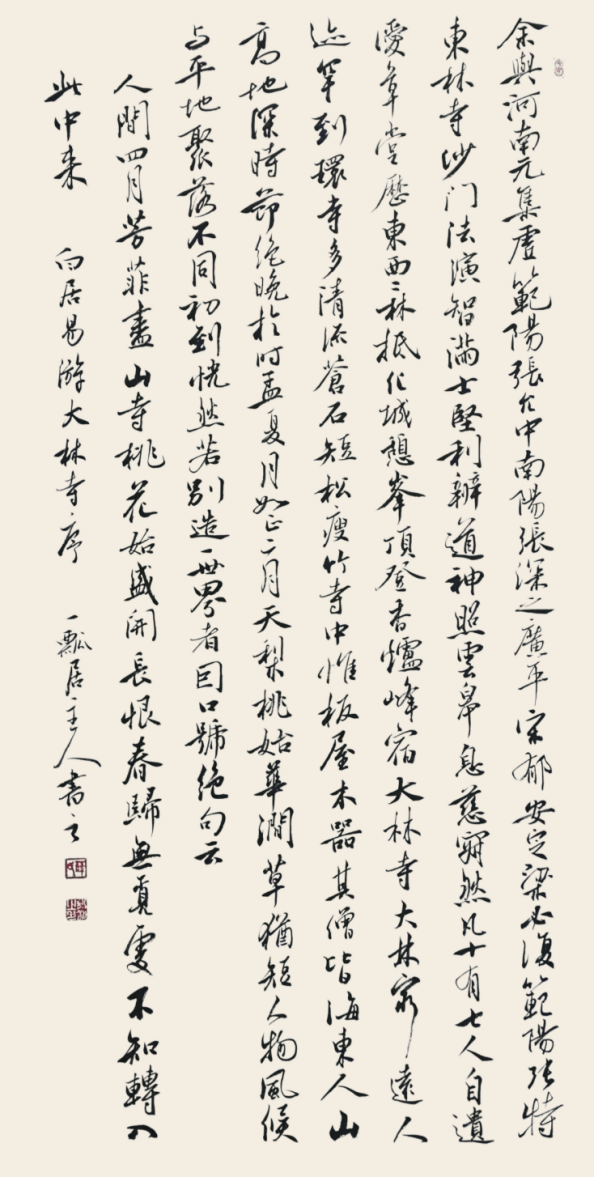 余與河南元集虛範陽張允中南陽張深之廣平宋郁安定梁必復範陽張特
東林寺沙门法演智滿士堅利辯道神照雲皋息慈寂然凡十有七人自遺
愛草堂歷東西二林抵化城憩峯頂登香爐峰宿大林寺大林窮遠人
迹罕到環寺多清流蒼石短松瘦竹寺中惟板屋木器其僧皆海東人山
高地深時節絕晚於时孟夏月如正二月天梨桃始華澗草猶短人物風候
与平地聚落不同初到恍然若別造一世界者因口號絕句云
人間四月芳菲盡山寺桃花始盛開長恨春歸無覓處不知轉入
此中来 白居易游大林寺序 一瓢居主人書之